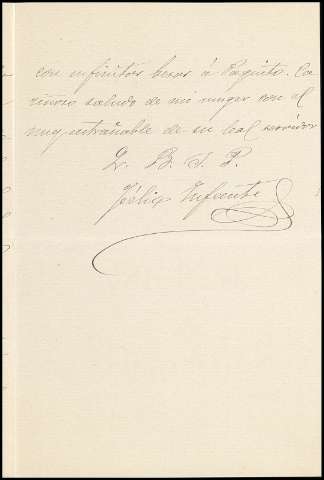 con infinitos besos á Paquito. Ca
riñoso saludo de mi muger con el
muy entrañable de su leal servidor
Q. B. S. P.
Félix Infante